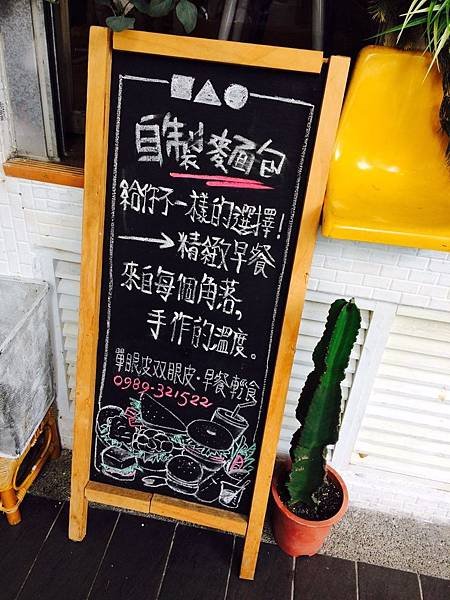 自製麵包
給你不一樣的選擇!
→精緻早餐
來自每個角落,
手作的溫度。
單眼皮双眼皮·早餐輕食
0989-321522